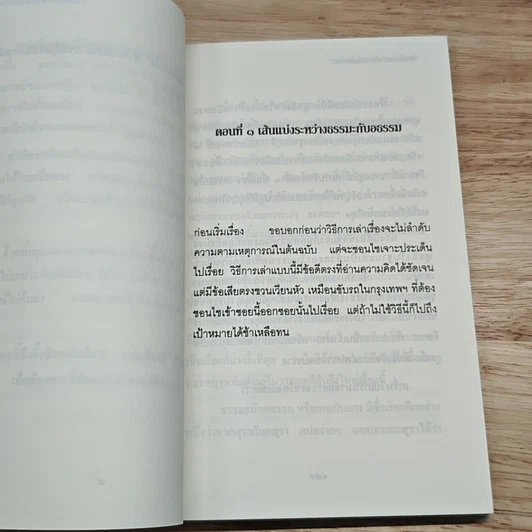 ตอนที่ ๑ เส้นแบ่งระหว่างธรรมะกับอธรรม
ก่อนเริ่มเรื่อง ขอบอกก่อนว่าวิธีการเล่าเรื่องจะไม่ลำดับ
ความตามเหตุการณ์ในต้นฉบับ แต่จะชอนไชเจาะประเด็น
ไปเรื่อย วิธีการเล่าแบบนี้มีข้อดีตรงที่อ่านความคิดได้ชัดเจน
แต่มีข้อเสียตรงชวนเวียนหัว เหมือนขับรถในกรุงเทพฯ ที่ต้อง
ชอนไชเข้าซอยนี้ออกซอยนั้นไปเรื่อย แต่ถ้าไม่ใช้วิธีนี้ก็ไปถึง
เป้าหมายได้ช้าเหลือทน